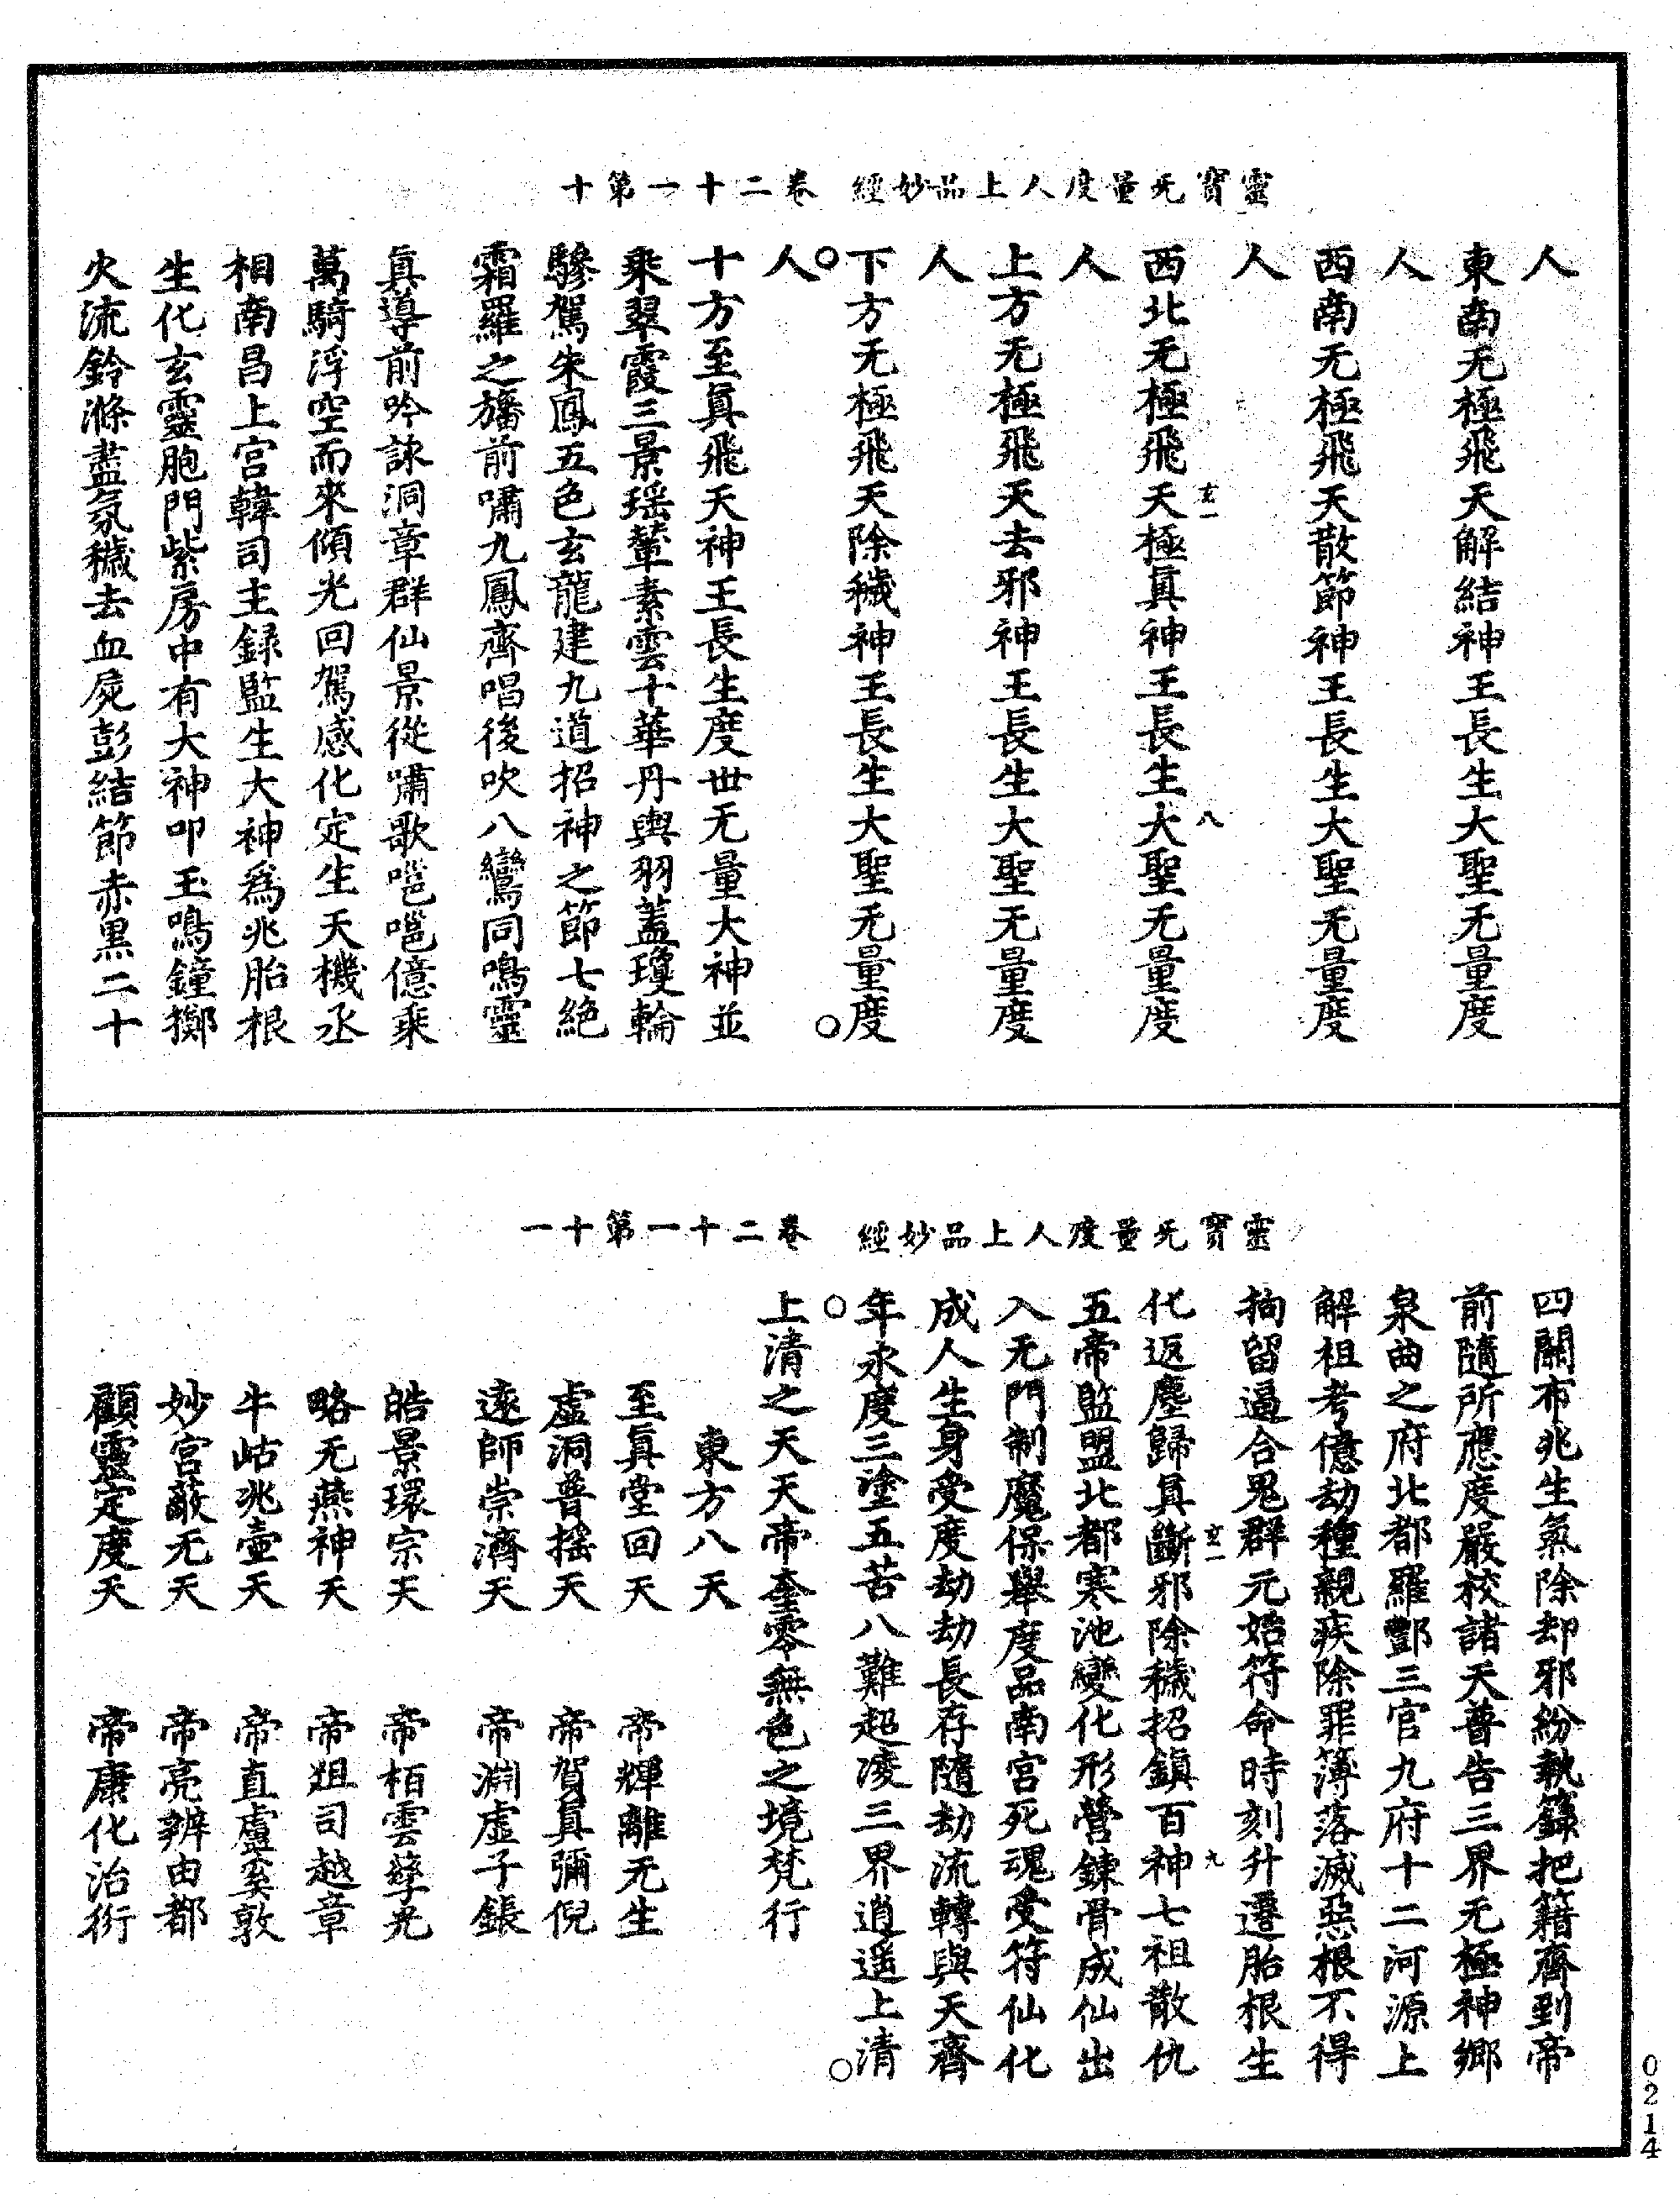 靈寶无量度人上品妙經　卷二十一第十
人
東南无極飛天解結神王長生大聖无量度
人
西南无極飛天散節神王長生大聖无量度
人
玄一　八
西北无極飛天極真神王長生大聖无量度
人
上方无極飛天去邪神王長生大聖无量度
人
下方无極飛天除穢神王長生大聖无量度
○　○
人
十方至真飛天神王長生度世无量大神並
乘翠霞三景瑶輦素雲十華丹輿羽蓋瓊輪
驂駕朱鳳五色玄龍建九道招神之節七絶
霜羅之旛前嘯九鳳齊唱後吹八鸞同鳴靈
真導前吟詠洞章群仙景從嘯歌嗈嗈億乘
萬騎浮空而來傾光回駕感化定生天機丞
相南昌上宫韓司主録監生大神爲兆胎根
生化玄靈胞門紫房中有大神叩玉鳴鐘擲
火流鈴滌盡氛穢去血屍彭結節赤黑二十
靈寶无量度人上品妙經　卷二十一第十一
四關布兆生氣除却邪紛執籙把籍齊到帝
前隨所應度嚴校諸天普告三界无極神鄉
泉曲之府北都羅酆三官九府十二河源上
解祖考億劫種親疾除罪簿落滅惡根不得
拘留逼合鬼群元始符命時刻升遷胎根生
玄一　九
化返塵歸真斷邪除穢招鎮百神七祖散仇
五帝監盟北都寒池變化形營鍊骨成仙出
入无門制魔保舉度品南宫死魂受符仙化
成人生身受度劫劫長存隨劫流轉與天齊
年永度三塗五苦八難超凌三界逍遥上清
○　○
上清之天天帝奎零無色之境梵行
東方八天
至真堂回天　帝輝離无生
虚洞普摇天　帝賀真彌倪
遠師崇濟天　帝淵虚子鋹
皓景環宗天　帝栢雲孽光
略无燕神天　帝爼司越章
牛岵兆壷天　帝直盧奚敦
妙宫敵无天　帝亮辨由都
顧靈定度天　帝康化治衎
0214